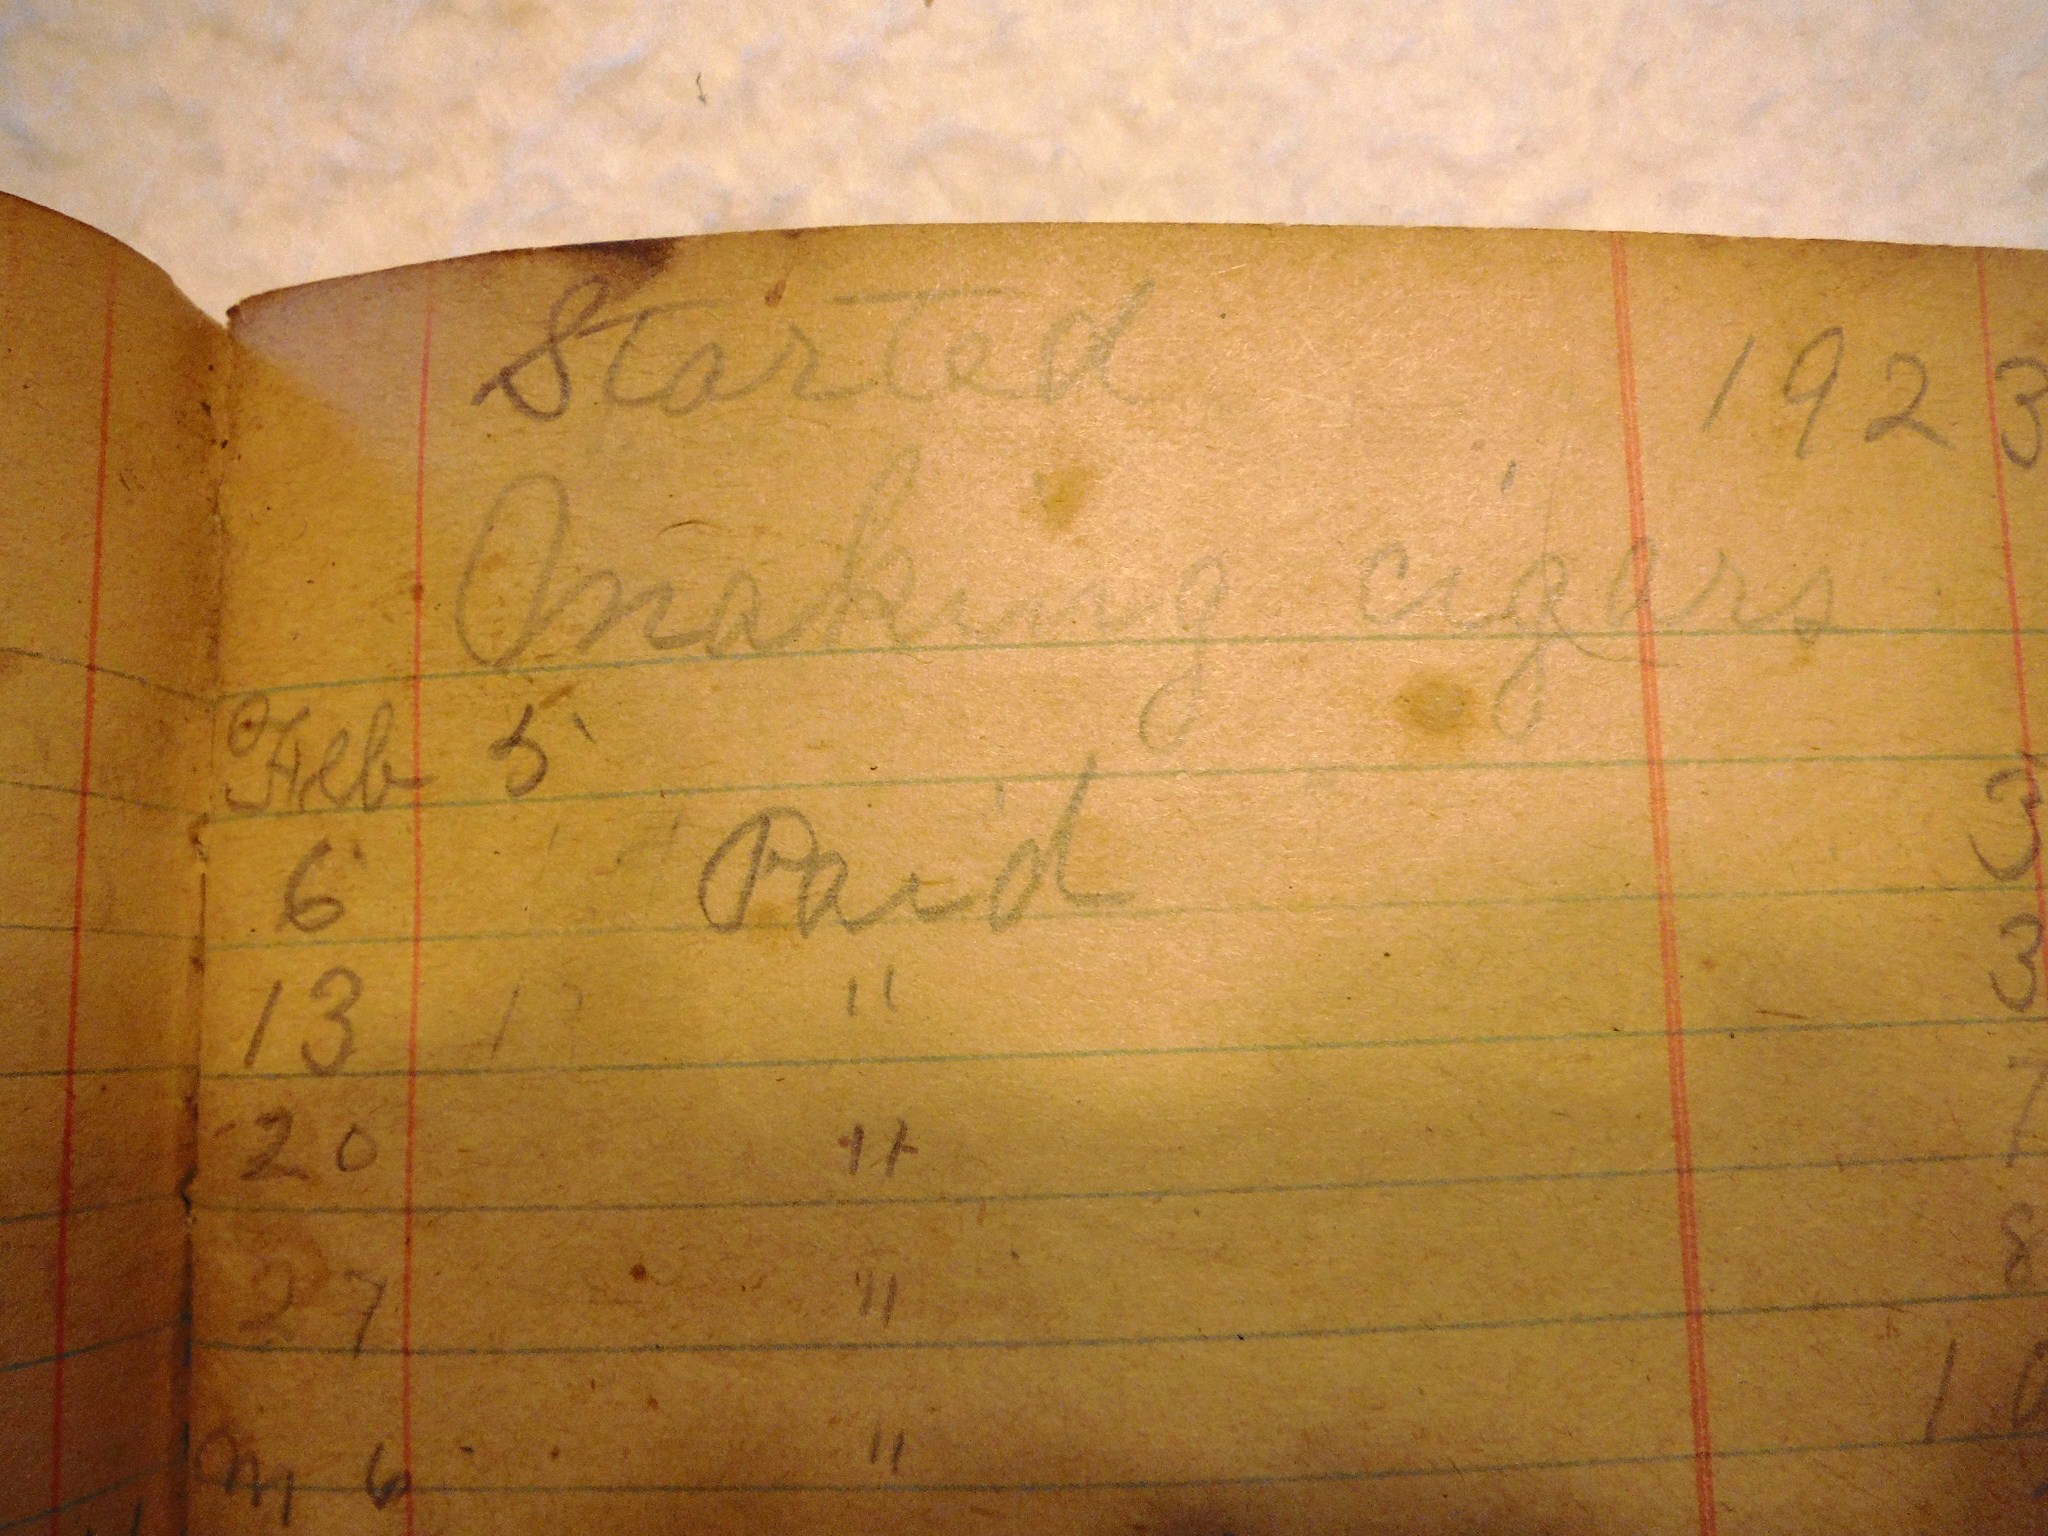 Started 1923
making cigars
Feb 5
6 Paid 3
13 " 3
20 " 7
27 " 8
6 " 10